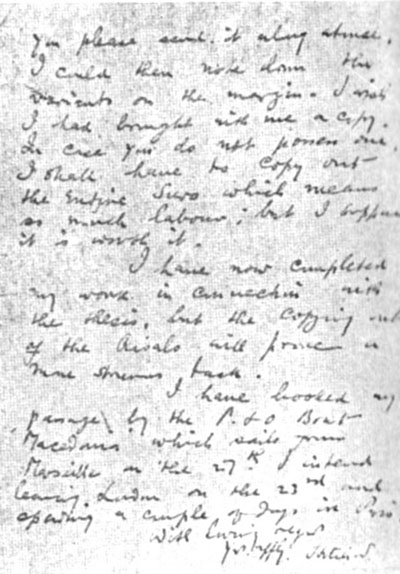 you please send it along at once.
I could then note down the
variants on the margin. I wish
I had brought with me a copy.
In case you do not possess one,
I shall have to copy out
the entire Suro which means
so much labour; but I suppose
it is worth it.
I have now completed
my work in connection with
the thesis, but the copying out
of the Risals will prove a
more strenuous task.
I have booked my
passage by the P. & O. Boat
Macedonia which sails from
Marseille on the 27th. I intend
leaving London on the 23rd and
spending a couple of days in Paris
With loving regards